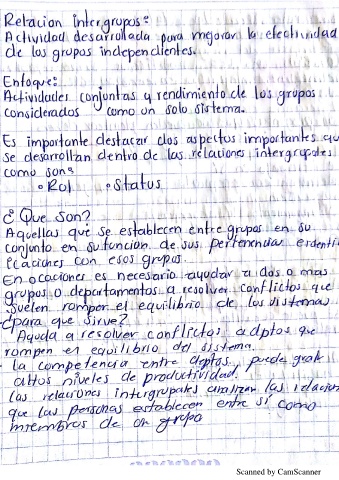 Relacion intergrupos:
Actividad desarrollada para mejorar la efectividad
de los grupos independientes.
Enfoque:
Actividades conjuntas y rendimiento de los grupos
considerados como un solo sistema.
Es importante destacar dos aspectos importantes que
se desarrollan dentro de las relaciones intergrupales
como son:
• Rol • Status
¿Que son?
Aquellas que se establecen entre grupos en su
conjunto en su funcion de sus pertenencias e identifi
caciones con esos grupos.
En ocaciones es necesario ayudar a dos o mas
grupos o departamentos a resolver conflictos que
suelen romper el equilibrio de los sistemas
¿para que sirve?
Ayuda a resolver conflictos a dptos que
rompen en equilibrio del sistema.
La competencia entre deptos, puede
altos niveles de productividad.
las relaciones intergrupales analizan las relacion
que las personas establecen entre si como
miembros de un grupo
Scanned by CamScanner